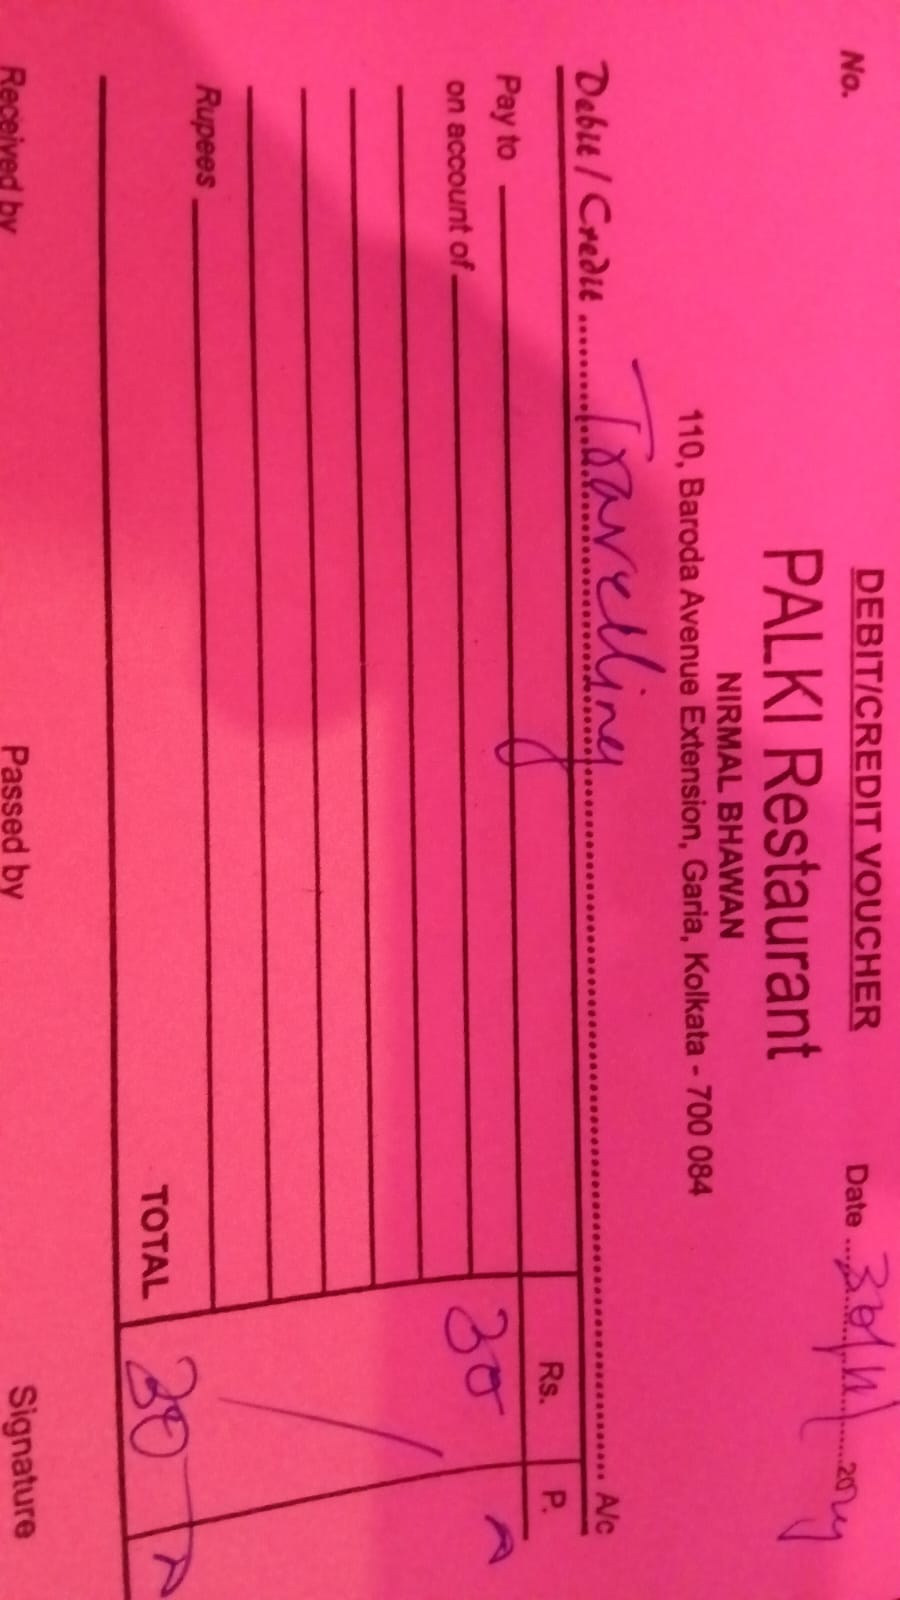 DEBIT/CREDIT VOUCHER
No.
Date
PALKI Restaurant
NIRMAL BHAWAN
110, Baroda Avenue Extension, Garia, Kolkata - 700 084
Debit / Credit Travelling A/c
Rs. P.
Pay to
on account of 30
Rupees
TOTAL 30
Received by Passed by Signature